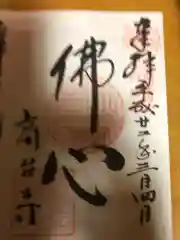 奉拝
平成廿二年三月四日
佛心
高台寺